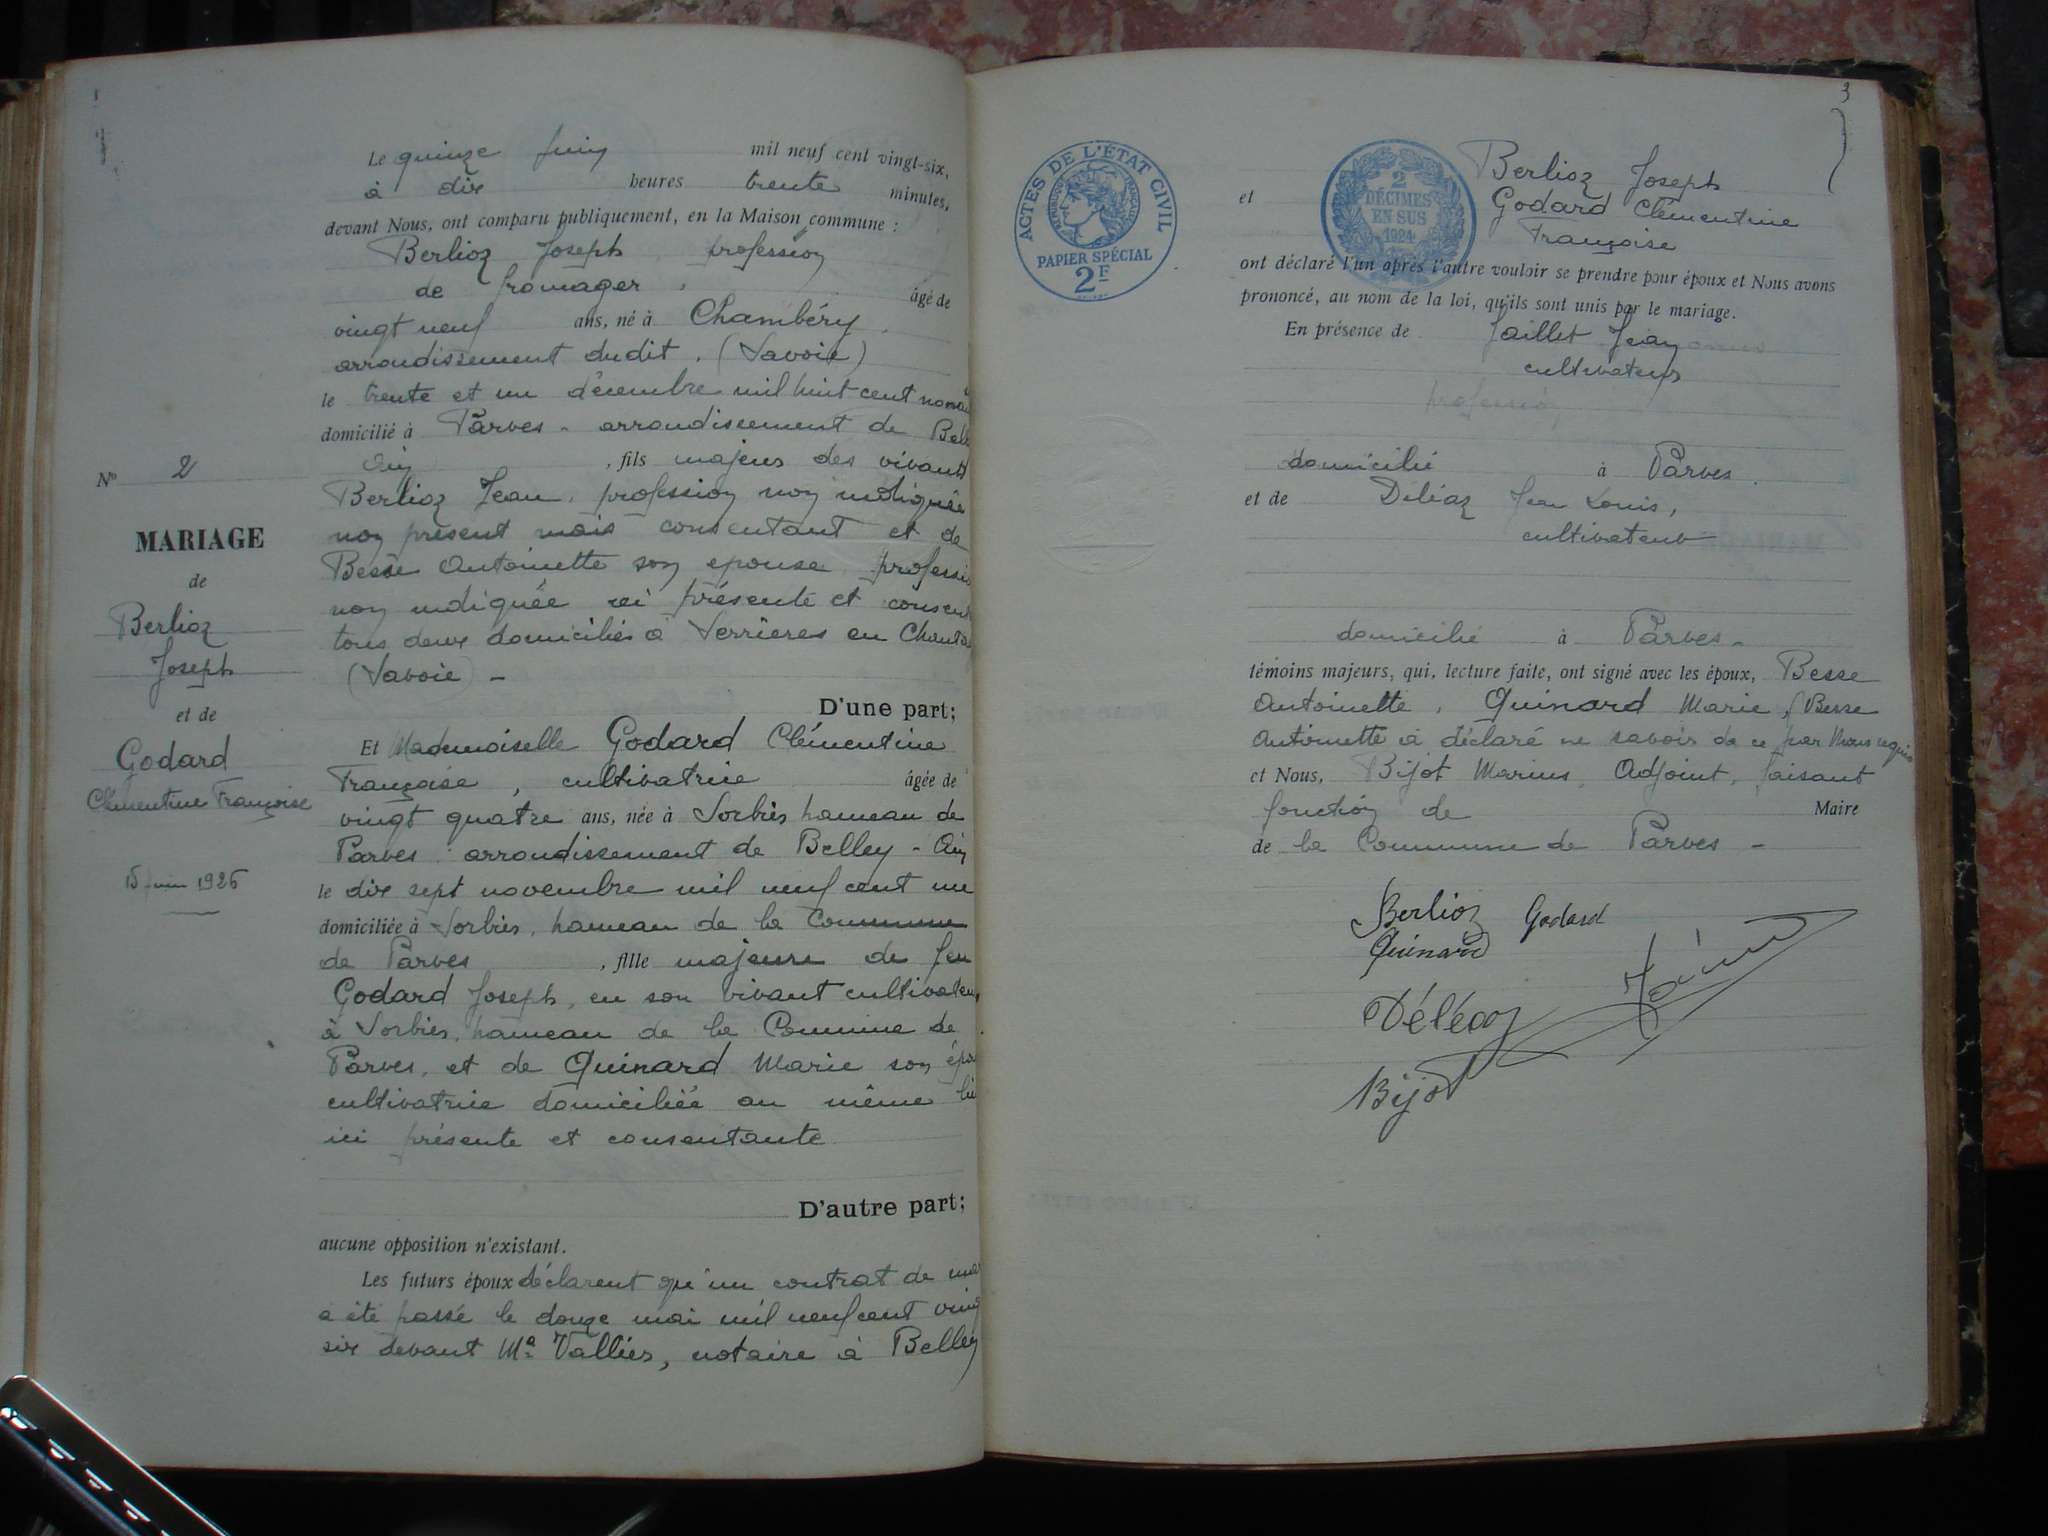 Le quinze juin mil neuf cent vingt-six,
à dix heures trente minutes,
devant Nous, ont comparu publiquement, en la Maison commune :
Berlioz Joseph, profession
de fromager, âgé de
vingt neuf ans, né à Chambéry,
arrondissement dudit. (Savoie)
le trente et un décembre mil huit cent
domicilié à Parves - arrondissement de
Ain, fils majeur des vivants
Berlioz Jean, profession non indiquée
non présent mais consentant et de
Besse Antoinette son epouse,
non indiquée ici présente et
tous deux domiciliés à Verrieres en
(Savoie) -
D'une part;
Et Mademoiselle Godard Clémentine
Françoise, cultivatrice âgée de
vingt quatre ans, née à Sorbier hameau de
Parves arrondissement de Belley - Ain
le dix sept novembre mil neuf cent un
domiciliée à Sorbier, hameau de la Commune
de Parves, fille majeure de feu
Godard Joseph, en son vivant cultivateur
à Sorbier, hameau de la Commune de
Parves, et de Quinard Marie son
cultivatrice domiciliée au même
ici présente et consentante
D'autre part;
aucune opposition n'existant.
Les futurs époux déclarent qu'un contrat de
a été passé le douze mai mil neuf cent
six devant Me Vallier, notaire à Belley
No 2
MARIAGE
de
Berlioz
Joseph
et de
Godard
Clémentine Françoise
15 juin 1926
3
ACTES DE L'ÉTAT CIVIL
PAPIER SPÉCIAL
2F
2
DÉCIMES
EN SUS
1924
Berlioz Joseph
et Godard Clémentine
Françoise
ont déclaré l'un après l'autre vouloir se prendre pour époux et Nous avons
prononcé, au nom de la loi, qu'ils sont unis par le mariage.
En présence de Jaillet Jean
cultivateur
domicilié à Parves
et de Déléaz Jean Louis,
cultivateur
domicilié à Parves -
témoins majeurs, qui, lecture faite, ont signé avec les époux, Besse
Antoinette, Quinard Marie, (Besse
Antoinette a déclaré ne savoir de ce par Nous requis
et Nous, Bijot Marius, Adjoint, faisant
fonction de Maire
de la Commune de Parves -
Berlioz Godard
Quinard
Déléaz
Bijot